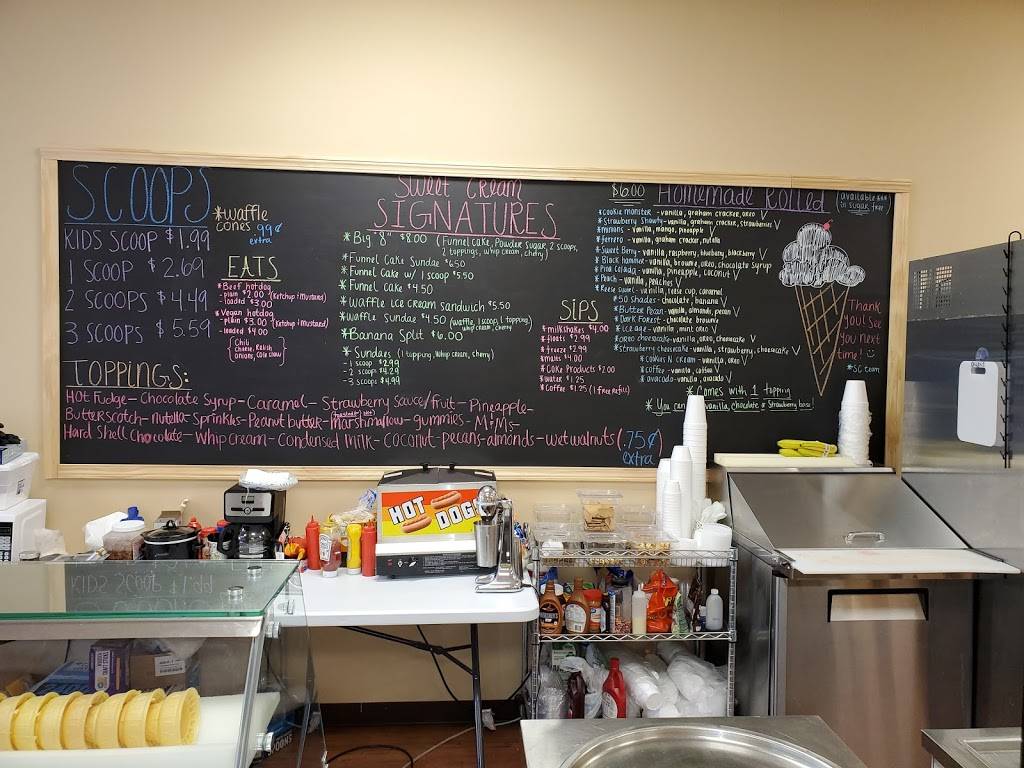 SCOOPS
*Waffle
cones 99¢
extra
KIDS SCOOP $1.99
1 SCOOP $2.69
2 SCOOPS $4.49
3 SCOOPS $5.59
EATS
*Beef hotdog
- plain $2.00 (Ketchup & Mustard)
- loaded $3.00
*Vegan hotdog
- plain $3.00 (Ketchup & Mustard)
- loaded $4.00
(Chili
Cheese, Relish
Onions, Cole Slaw)
TOPPINGS:
Hot Fudge - Chocolate Syrup - Caramel - Strawberry Sauce/fruit - Pineapple -
Butterscotch - nutella - Sprinkles - Peanut butter - marshmallow - gummies - M&Ms -
Hard Shell Chocolate - Whip cream - Condensed Milk - Coconut - pecans - almonds - wet walnuts (.75¢
extra)
Sweet Cream
SIGNATURES
* Big "8" $8.00 (Funnel Cake, Powder Sugar, 2 scoops,
2 toppings, whip cream, cherry)
* Funnel Cake Sundae $6.50
* Funnel Cake w/ 1 scoop $5.50
* Funnel Cake $4.50
* Waffle ice cream sandwich $5.50
* Waffle Sundae $4.50 (waffle, 1 scoop, 1 topping,
whip cream, cherry
* Banana Split $6.00
* Sundaes (1 topping, whip cream, cherry)
- 1 scoop $2.99
- 2 scoop $4.29
- 3 scoops $4.99
SIPS
* milkshakes $4.00
* floats $2.99
* freeze $2.99
* malts $4.00
* Coke Products $2.00
* water $1.25
* Coffee $1.25 (1 free refill)
$6.00 Homemade Rolled
(available
in sugar free)
* cookie monster - vanilla, graham cracker, oreo
* Strawberry Shawty - vanilla, graham cracker, strawberries
* minions - vanilla, mango, pineapple
* ferrero - vanilla, graham cracker, nutella
* Sweet Berry - vanilla, raspberry, blueberry, blackberry
* Black hammer - vanilla, brownie, oreo, chocolate syrup
* Pina Colada - vanilla, pineapple, coconut
* Peach - vanilla, peaches
* Reese Swirl - vanilla, reese cup, caramel
* 50 Shades - chocolate, banana
* Butter Pecan - vanilla, almonds, pecan
* Dark Forest - chocolate, brownie
* ice age - vanilla, mint oreo
* oreo cheesecake - vanilla, oreo, cheesecake
* strawberry cheesecake - vanilla, strawberry, cheesecake
* cookies N cream - vanilla, oreo
* coffee - vanilla, coffee
* avocado - vanilla, avocado
* Comes with 1 topping
* You can vanilla, chocolate or Strawberry base!
Thank
you! See
you next
time!
*SC team
HOT
DOG